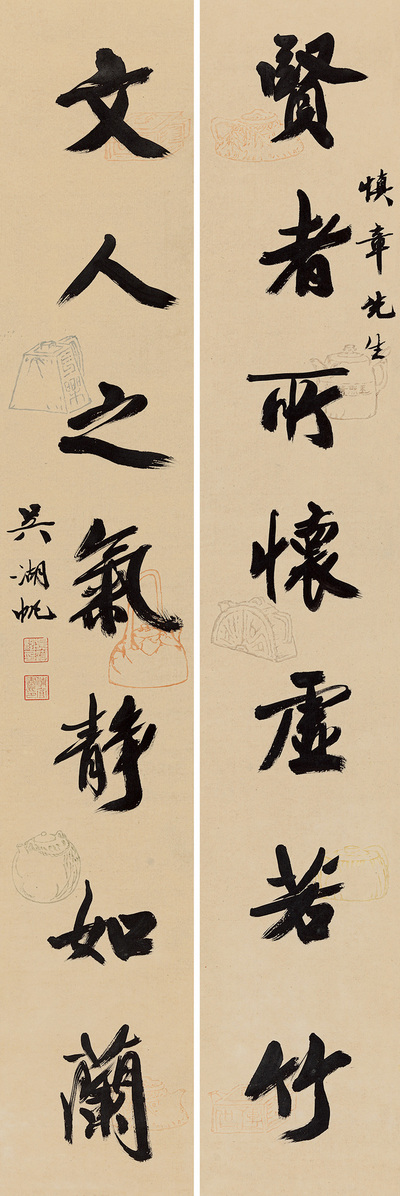 慎章先生
賢者所懷虛若竹
文人之氣靜如蘭
吳湖帆